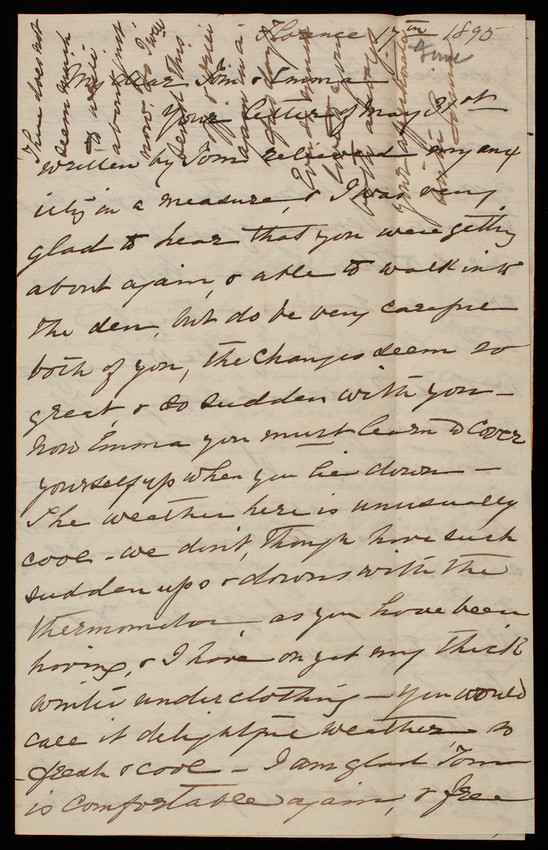 Florence 17th 1895
June
My dear Tom & Emma
Your letter of May 31st
written by Tom relieved my anx
iety in a measure, & I was very
glad to hear that you were getting
about again, & able to walk into
the den, but do be very careful
both of you, the changes seem so
great, & so sudden with you –
now Emma you must learn to cover
yourself up when you lie down –
The weather here is unusually
cool – we don't, though have such
sudden ups & downs with the
thermometer as you have been
having, & I have on yet my thick
winter underclothing – You would
call it delightful weather so
fresh & cool – I am glad Tom
is comfortable again, & free
There does not
seem much
to write
about just
now so I will
send this
off
again in a
few days
love
your affectionate